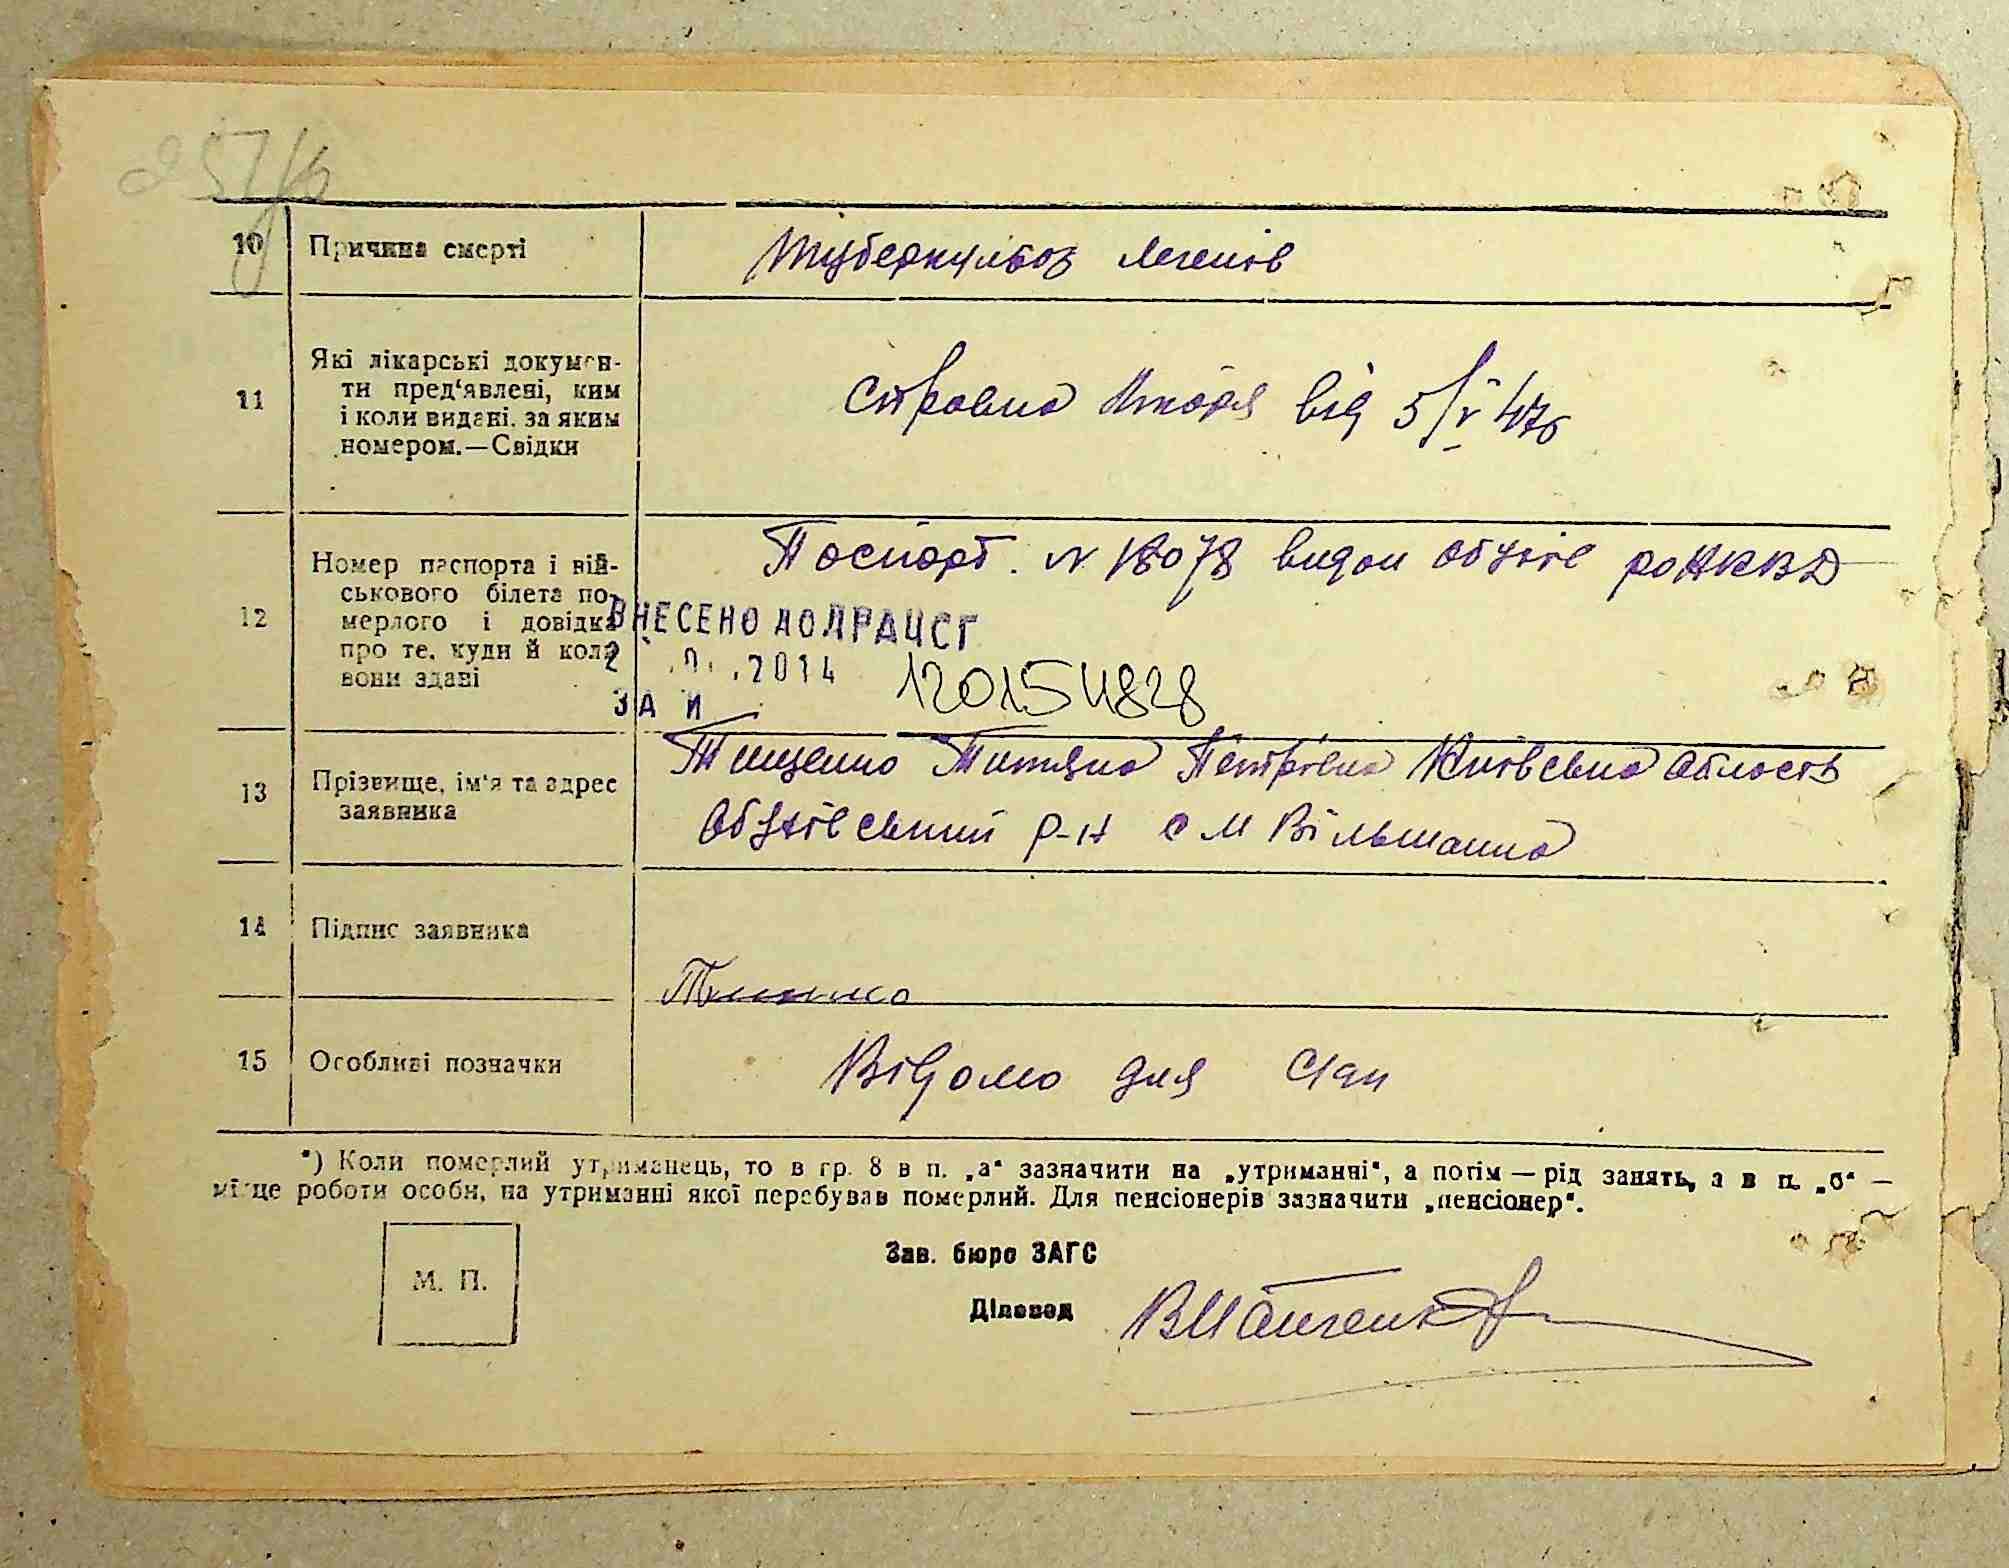 10 Причина смерті Туберкульоз легенів
11 Які лікарські докумен-
ти пред'явлені, ким
і коли видані, за яким
номером.—Свідки
Справка лікаря від 5/V 47б
12 Номер паспорта і вій-
ськового білета по-
мерлого і довідка
про те, куди й коли
вони здані
Поспорт. N 18078 видан Обухів роНКВД
ВНЕСЕНО ДО ДРАЦСГ
2014
ЗА №
120154828
13 Прізвище, ім'я та адрес
заявника
Тищенко Титяна Петрівна Київська область
Обухівський р-н с М Вільшанка
14 Підпис заявника
15 Особливі позначки Відомо для
*) Коли померлий утриманець, то в гр. 8 в п. „а" зазначити на „утриманні", а потім — рід занять, а в п. „б" —
місце роботи особи, на утриманні якої перебував померлий. Для пенсіонерів зазначити „пенсіонер".
М. П.
Зав. бюро ЗАГС
Діловод